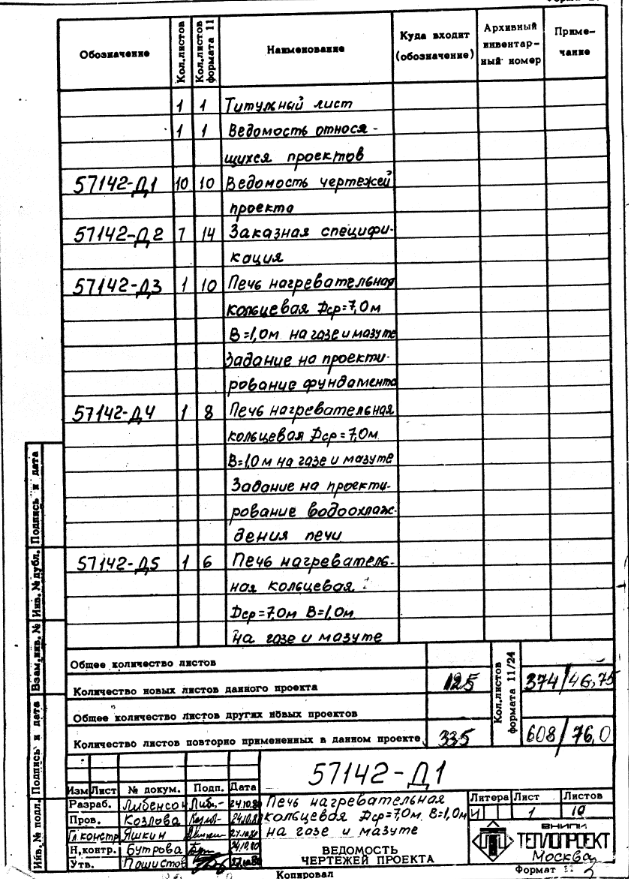 Обозначение Кол.листов Кол.листов формата 11 Наименование Куда входит (обозначение) Архивный инвентар- ный номер Приме- чание
1 1 Титульный лист
1 1 Ведомость относя-
щихся проектов
57142-Д1 10 10 Ведомость чертежей
проекта
57142-Д2 7 14 Заказная специфи-
кация
57142-Д3 1 10 Печь нагревательная
кольцевая Dср=7,0м
В=1,0м на газе и мазуте
Задание на проекти-
рование фундамента
57142-Д4 1 8 Печь нагревательная
кольцевая Dср=7,0м
В=1,0м на газе и мазуте
Задание на проекти-
рование водоохлаж-
дения печи
57142-Д5 1 6 Печь нагреватель-
ная кольцевая
Dср=7,0м В=1,0м
на газе и мазуте
Общее количество листов
Количество новых листов данного проекта 125 Кол.листов формата 11/24 374/46,75
Общее количество листов других новых проектов
Количество листов повторно примененных в данном проекте 335 608/76,0
57142-Д1
Изм Лист № докум. Подп. Дата
Разраб. Либенсон
Пров. Козлова
Гл.констр Яшкин
Н.контр. Бутрова
Утв. Пашистов
Печь нагревательная
кольцевая Dср=7,0м, В=1,0м
на газе и мазуте
ВЕДОМОСТЬ
ЧЕРТЕЖЕЙ ПРОЕКТА
Литера Лист Листов
И 1 10
ВНИПИ
ТЕПЛОПРОЕКТ
Москва
Копировал Формат
Инв.№ подл. Подпись и дата Взам.инв.№ Инв.№ дубл. Подпись и дата